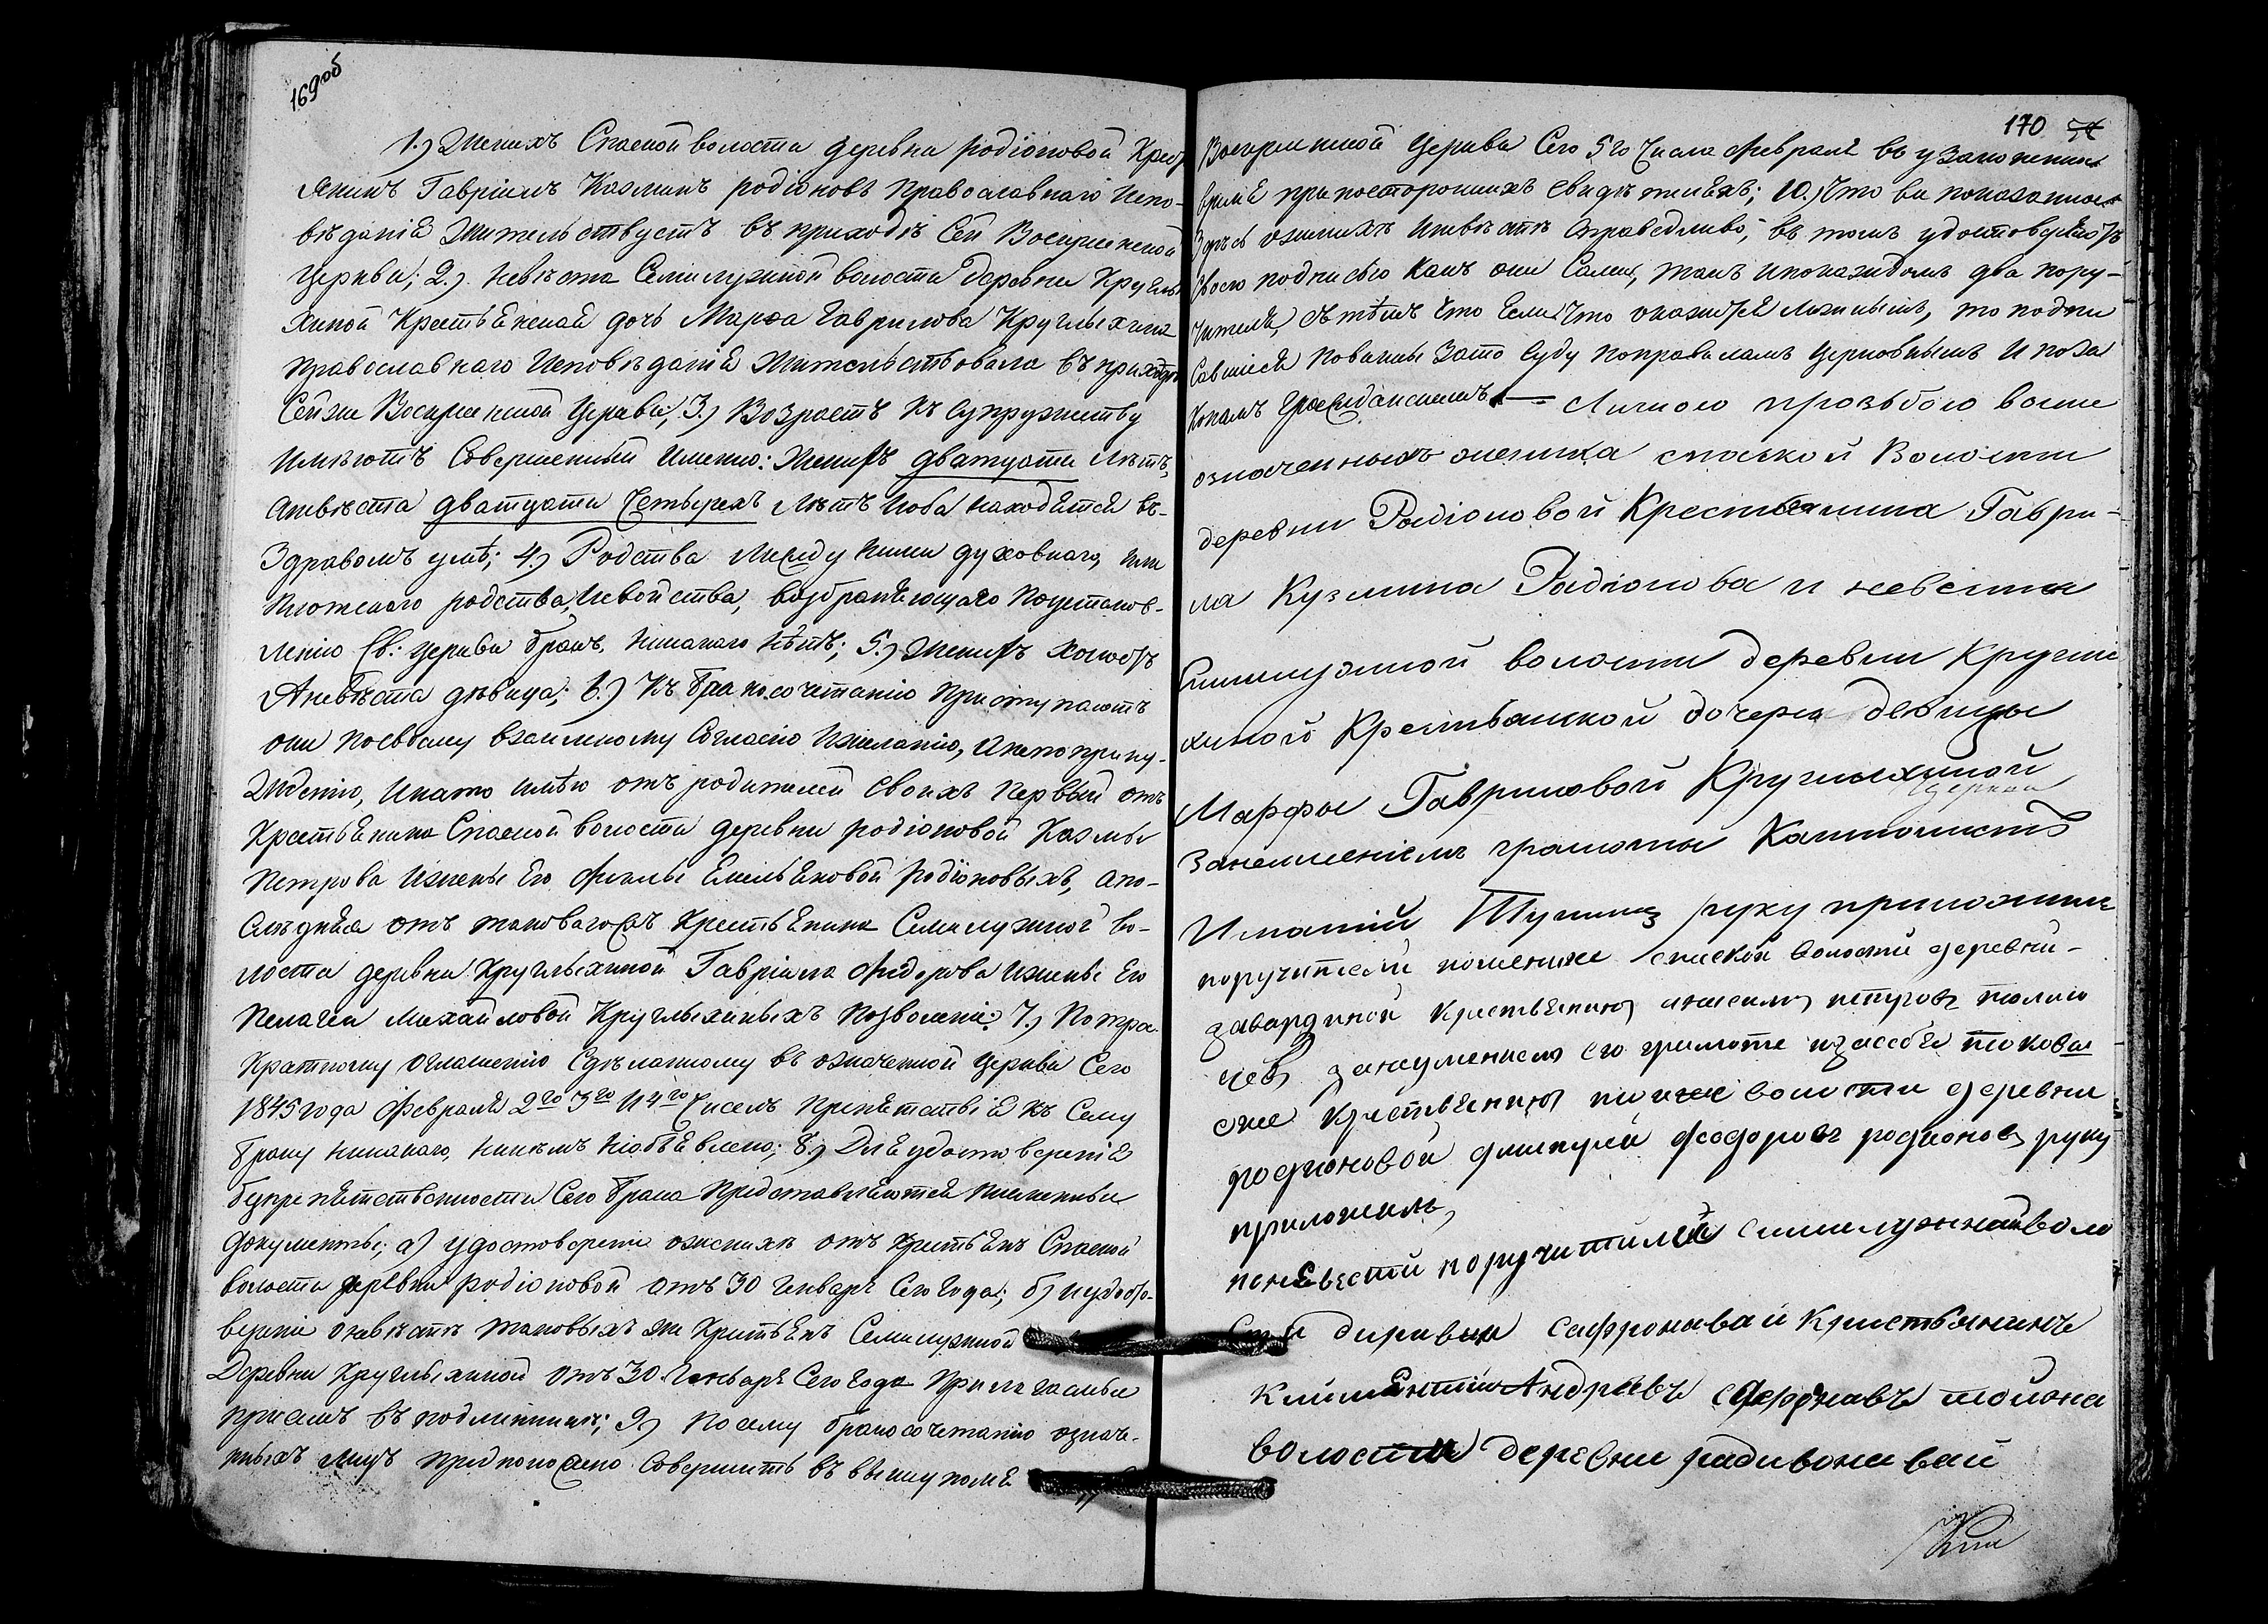 169об
1.) Женихъ Спаской волости деревни родіоновой Крест
янинъ Гавріилъ Козминъ родіоновъ Православнаго Испо-
вѣданія Жительствуетъ въ приходѣ Сей Воскресенской
Церкви; 2.) Невѣста Семилужной волости Деревни Круглы
хиной Крестьянская дочь Марѳа Гаврилова Круглыхина
Православнаго Исповѣданія Жительствовала въ приходѣ
Сейже Воскресенской Церкви; 3.) Возрастъ къ Супружеству
Имѣютъ Совершенный Именно: Женихъ дватцати лѣтъ,
Аневѣста дватцати Четырехъ Лѣтъ Иоба находятся въ-
Здравомъ умѣ; 4.) Родства Между Ними духовнаго, или
Плотскаго родства, Исвойства, возбраняющаго Поустанов-
ленію Св: Церкви бракъ, Никакого Нѣтъ; 5.) Женихъ холостъ
Аневѣста дѣвица; 6.) Къ бракосочетанію Приступаютъ
они Посвоему взаимному Согласію Ижеланію, Анепопрену-
жденію, Инато Имѣю отъ родителей Своихъ Первый отъ
Крестьянина Спаской волости деревни родіоновой Козмы
Петрова Ижены Его Феклы Емельяновой родіоновыхъ, апо-
слѣдняя отъ таковагожъ Крестьянина Семилужной во-
лости деревни Круглыхиной Гавріила Федорова Ижены Его
Пелагеи Михайловой Круглыхиныхъ Позволеніе; 7.) Потрое
Кратному Оглашенію Сдѣланному въ означенной Церкви Сего
1845 года Февраля 2го 3го И 4го Чиселъ Препятствія къ Сему
браку Никакого, Никѣмъ Необъявлено; 8.) Для удостоверенія
безпрепятственности Сего брака Представляются Писменные
Документы; а) удостоверение оженихѣ отъ Крестьянъ Спаской
волости деревни родіоновой отъ 30 Генваря Сего Года; б) иудосто-
верніе оневѣстѣ таковыхъ же Крестьянъ Семилужной
Деревни Круглыхиной Отъ 30. Генваря Сего Года Прилагаемые
присемъ въ подлинникѣ; 9.) Посему бракосочетанію означе-
нныхъ лицъ предположено Совершить въ вышеупомя
170
Воскресенской Церкви Сего 5го Числа Февраля въ узаконенное
время припостороннихъ Свидѣтеляхъ; 10.) Что въ показанное
Здѣсь оженихѣ Иневѣстѣ Справедливо; въ томъ удостоверяютъ
Своею подписью Какъ они Сами, такъ Ипокаждомъ два пору-
чителя, съ тѣмъ Что Если Что окажется Ложнымъ, то подпи
Савшіеся Повинны Зато Суду Поправиламъ Церковнымъ И поза
Конамъ Гражданскимъ.— Личною прозьбою выше
означенныхъ жениха спаской Волости
деревни Радіоновой Крестьянина Гаври-
ла Кузмина Радіонова и невесты
Симилужной волости деревни Круглы
хиной Крестьянской дочери девицы
Марфы Гавриловой Круглыхиной
Церкви
занеимениемъ грамоты
Игнатій руку приложилъ
поручители поженихе спаской волости деревни-
заварзиной Крестьянинъ петровъ
чевъ занеумениемъ его грамоте изасебя таковы
еже Крестьянинъ тойже волости деревни
родионовой дмитрей феодоровъ родионовъ руку
приложилъ,
поневести поручители симилужнай воло
сти диривни сафронавай Кристьянинъ
климентий Андреевъ сафронавъ тойжа
волости деревни радивонавай